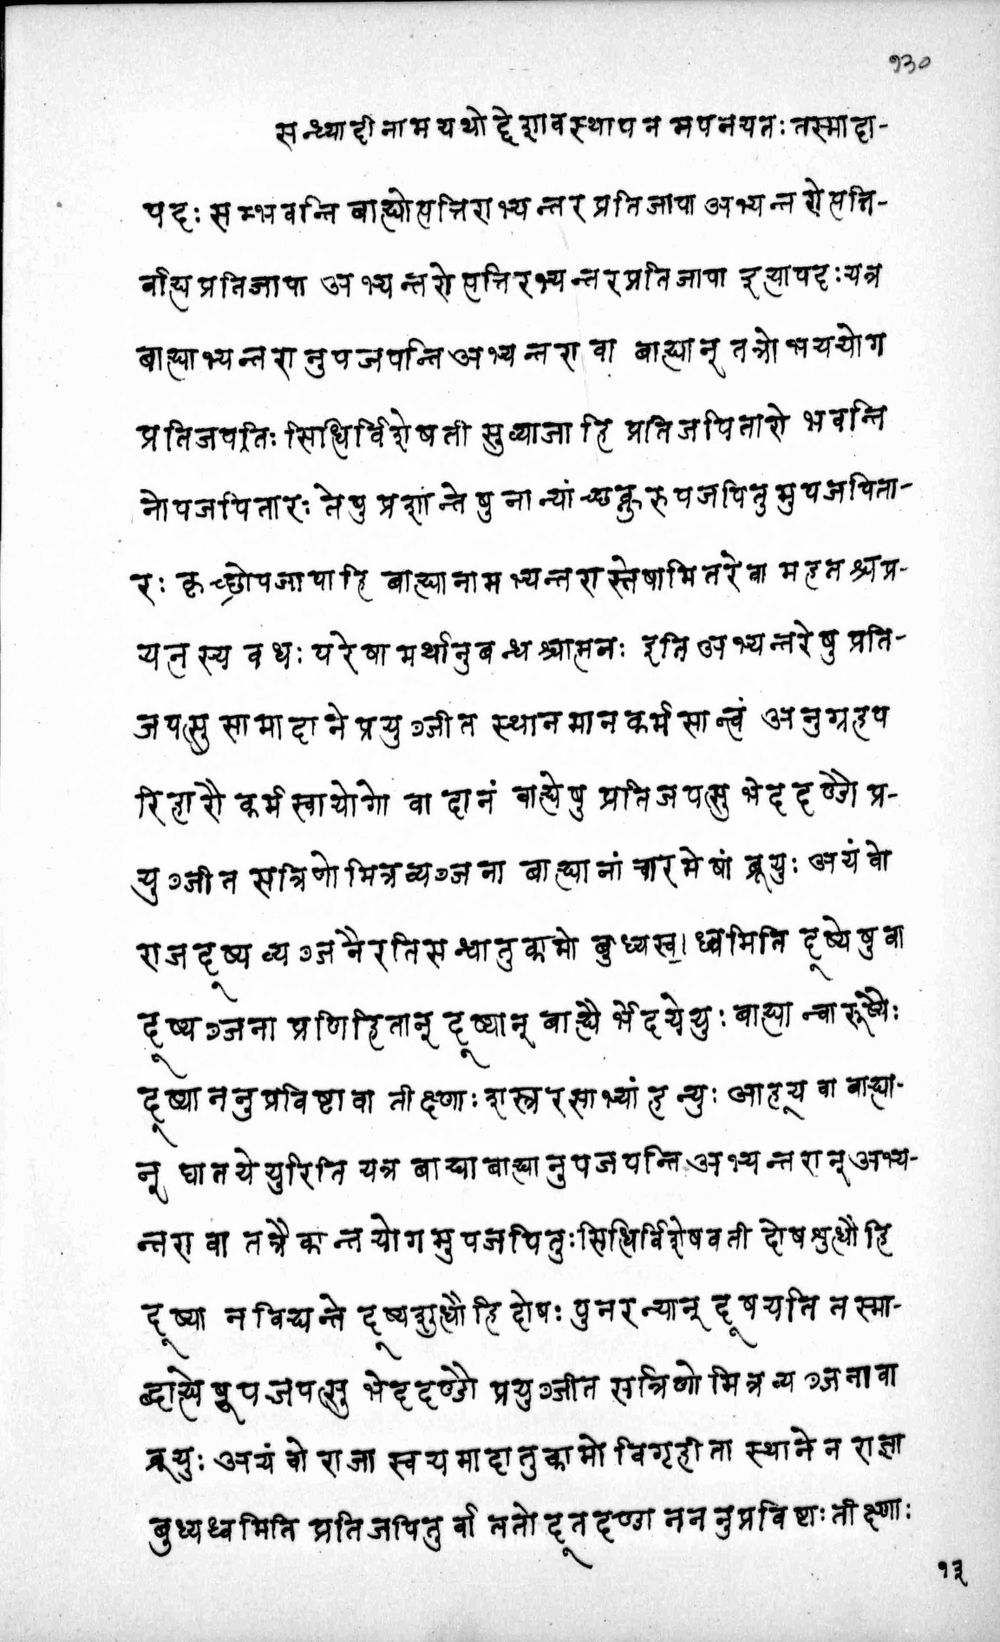 १३०
सन्ध्यादीनामयथोद्देशावस्थापनमपनयतः तस्मादा-
पदः सम्भवन्ति बाह्योत्पत्तिराभ्यन्तरप्रतिजापा अभ्यन्तरोत्पत्ति-
र्बाह्यप्रतिजापा अभ्यन्तरोत्पत्तिरभ्यन्तरप्रतिजापा इत्यापदः यत्र
बाह्याभ्यन्तरानुपजपन्ति अभ्यन्तरा वा बाह्यान् तत्रोभययोग
प्रतिजपतिः सिधिर्विशेषती सुव्याजा हि प्रतिजपितारो भवन्ति
नोपजपितारः तेषु प्रशान्तेषु नान्यांच्छक्नुरुपजपितुमुपजपिता-
रः कृच्छ्रोपजापाहि बाह्यानामभ्यन्तरास्तेषामितरे वा महतश्चप्र-
यत्नस्य वधः परेषामर्थानुबन्धश्चात्मनः इति अभ्यन्तरेषु प्रति-
जपत्सु सामादाने प्रयुञ्जीत स्थानमानकर्म सान्त्वं अनुग्रहप
रिहारौ कर्मस्वायोगो वा दानं बाह्येषु प्रतिजपत्सु भेददण्डौ प्र-
युञ्जीत सत्रिणो मित्रव्यञ्जना बाह्यानां चारमेषां ब्रूयुः अयं वो
राजदूष्यव्यञ्जनैरतिसन्धातुकामो बुध्यस्व।ध्वमिति दूष्येषु वा
दूष्यञ्जना प्रणिहितान् दूष्यान् बाह्यै र्भेदयेयुः बाह्यान्वा रूष्यैः
दूष्याननुप्रविष्टा वा तीक्ष्णाः शस्त्ररसाभ्यां हन्युः आहूय वा बाह्या-
न् घातयेयुरिति यत्र बाह्याबाह्यानुपजपन्ति अभ्यन्तरान् अभ्य-
न्तरा वा तत्रैकान्तयोगमुपजपितुः सिधिर्विशेषवती दोषशुध्धौ हि
दूष्या न विद्यन्ते दूष्यशुध्धौ हि दोषः पुनरन्यान् दूषयति तस्मा-
द्बाह्येषूपजपत्सु भेददण्डौ प्रयुञ्जीत सत्रिणो मित्रव्यञ्जना वा
ब्रूयुः अयं वो राजा स्वयमादातुकामो विगृहीता स्थानेन राज्ञा
बुध्यध्वमिति प्रतिजपितुर्वा ततो दूतदण्डाननुप्रविष्टाः तीक्ष्णाः
१३